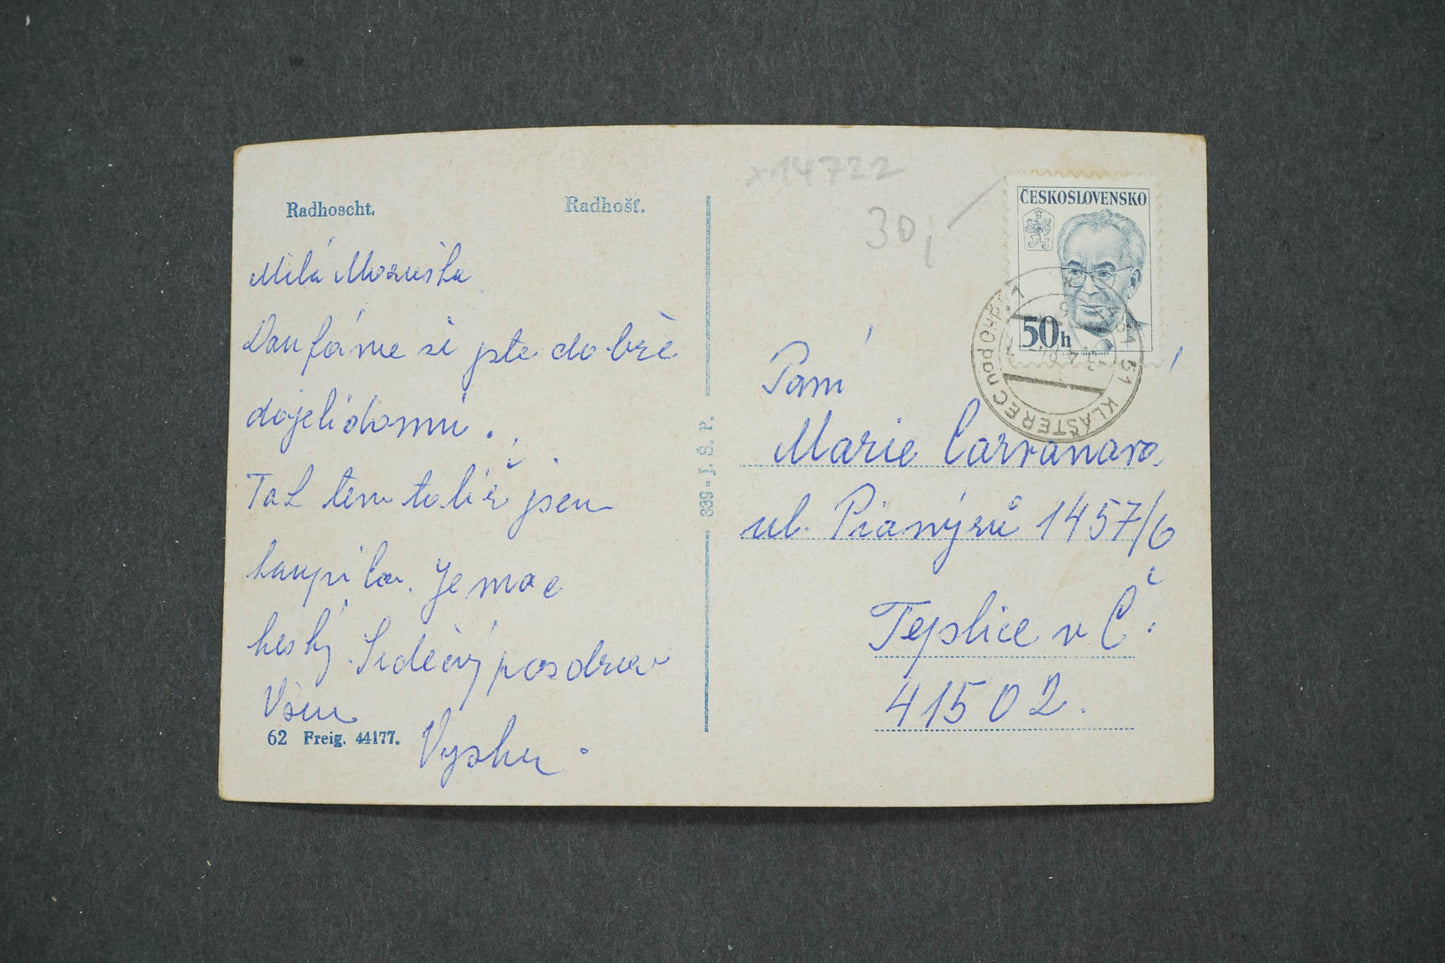 Radhoscht.
Radhošť.
Milá Maruška
Doufáme si jste dobře
dojeli domu.
Tak ten talíř jsem
koupila. Je moc
heský. Srdečný pozdrav
Vám
62 Freig. 44177.
339 - J. Š. P.
x14722
30,-
ČESKOSLOVENSKO
50h
431 51 KLÁŠTEREC nad Ohří 1
Paní
Marie
ul. 1457/6
Teplice v Č.
41502.